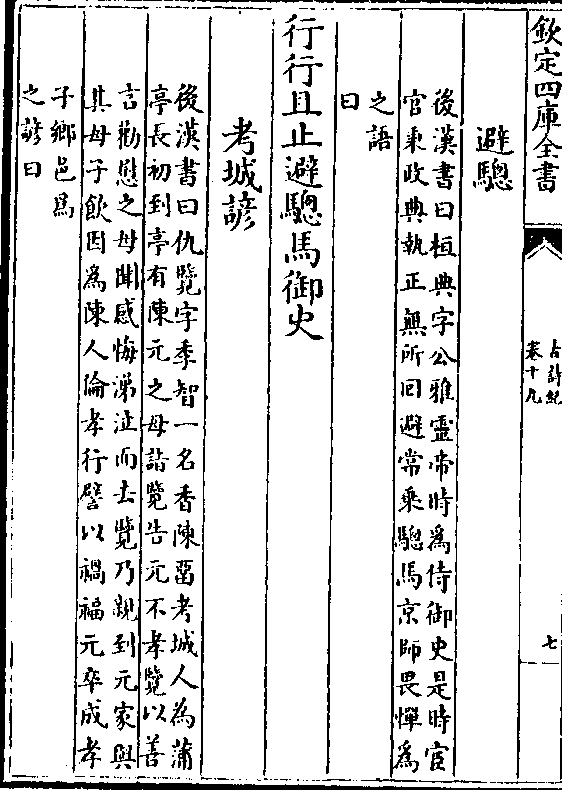 欽定四庫全書
古詩紀
卷十九
七
避驄
後漢書曰桓典字公雅靈帝時為侍御史是時宦
官秉政典執正無所回避常乘驄馬京師畏憚為
之語
曰
行行且止避驄馬御史
考城諺
後漢書曰仇覽字季智一名香陳留考城人為蒲
亭長初到亭有陳元之母詣覽告元不孝覽以善
言勸慰之母聞感悔涕泣而去覽乃親到元家與
其母子飲因為陳人倫孝行譬以禍福元卒成孝
子鄉邑為
之諺曰